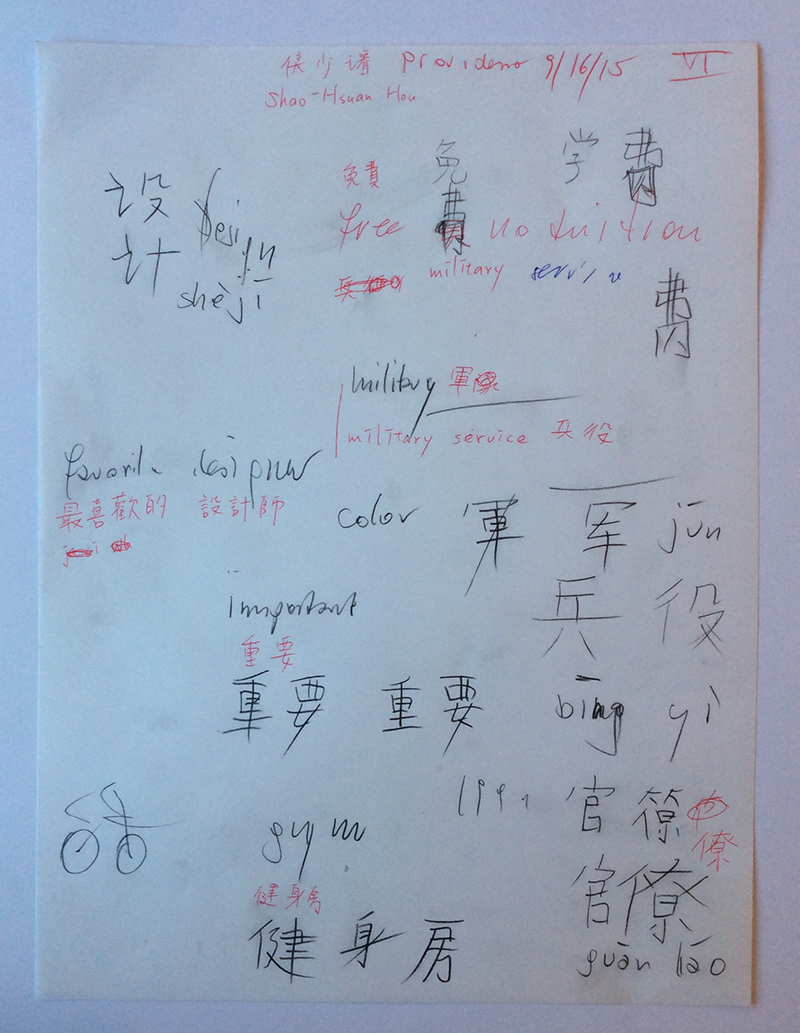 侯少 Providenc 9/16/15 VI
Shao-Hsuan Hou
免 学 费
免費
设 Design
计
shèjī
free 費 no tuition
military service
费
military 軍隊
military service 兵役
favorite designer
最喜歡的 設計師
color 軍 军 jūn
important
兵 役
重要
重要 重要 bīng yì
1991 官 簝
僚
gym
官僚
健身房
健身房
guān lǎo